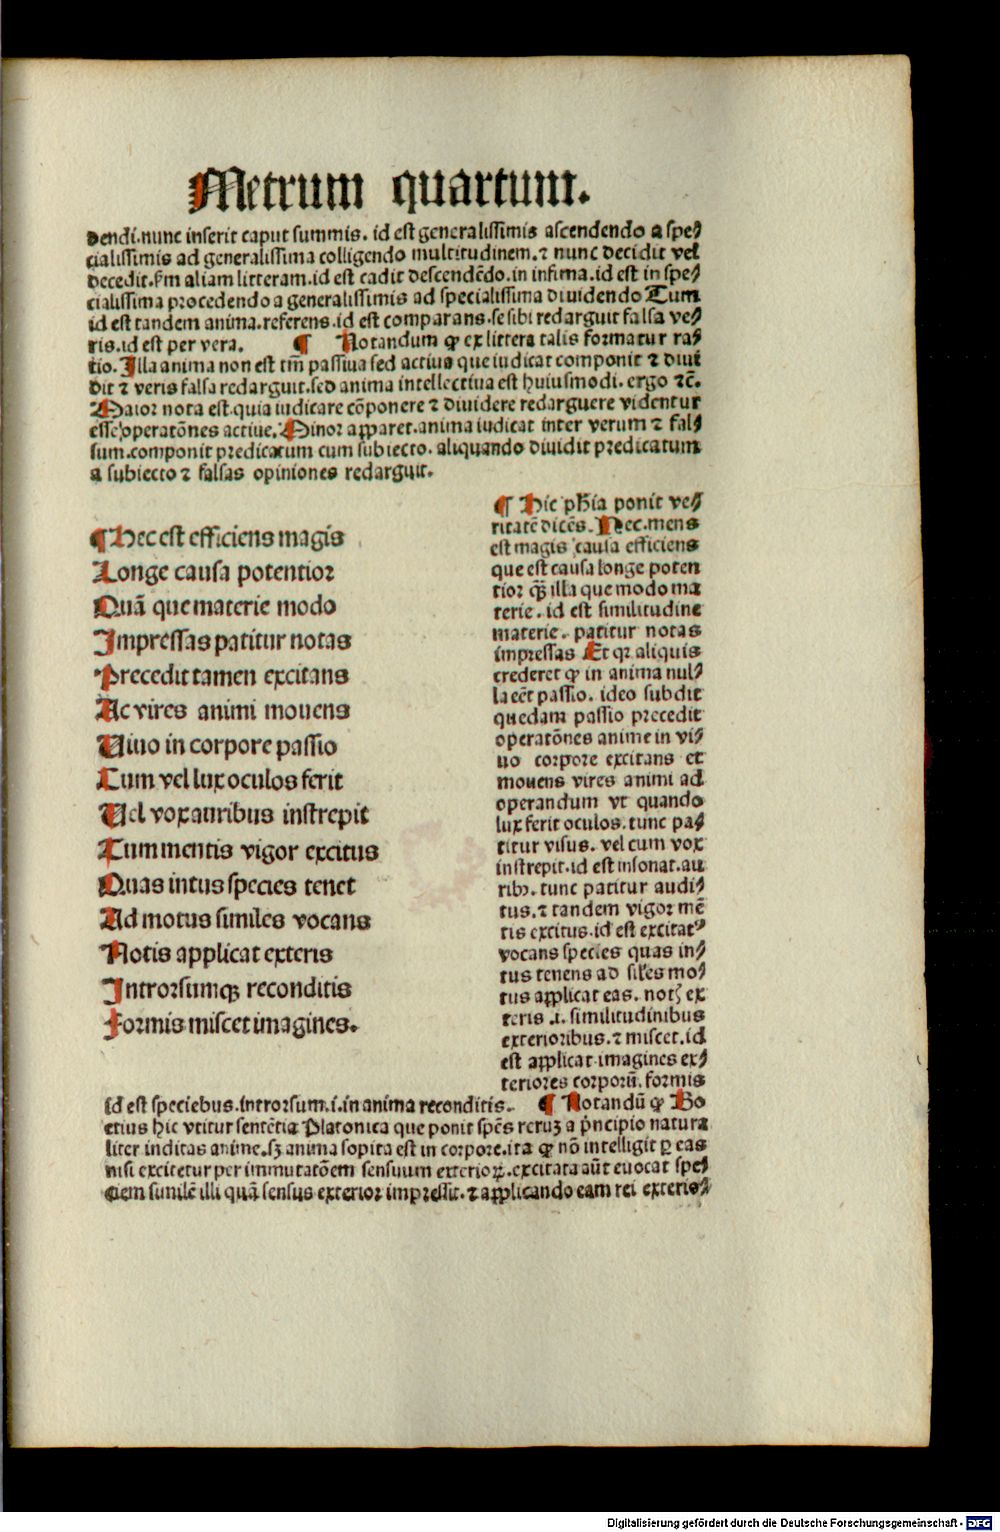 Metrum quartum.
dendi.nunc inserit caput summis. id est generalissimis ascendendo a spe⸗
cialissimis ad generalissima colligendo multitudinem.⁊ nunc decidit vel
decedit.ẜm aliam litteram.id est cadit descendēdo.in infima.id est in spe⸗
cialissima procedendo a generalissimis ad specialissima diuidendo Tum
id est tandem anima.referens.id est comparans.se sibi redarguit falsa ve⸗
ris.id est per vera. ¶ Notandum ꝙ ex littera talis formatur ra⸗
tio. Illa anima non est tm̄ passiua sed actius que iudicat componit ⁊ diui
dit ⁊ veris falsa redarguit.sed anima intellectiua est huiusmodi. ergo ⁊c̄.
Maior nota est.quia iudicare cōponere ⁊ diuidere redarguere videntur
esse operatōnes actiue. Minor apparet.anima iudicat inter verum ⁊ fal⸗
sum.componit predicatum cum subiecto. aliquando diuidit predicatum
a subiecto ⁊ falsas opiniones redarguit.
¶ Hec est efficiens magis
Longe causa potentior
Quā que materie modo
Impressas patitur notas
Precedit tamen excitans
Ac vires animi mouens
Uiuo in corpore passio
Cum vel lux oculos ferit
Uel vox auribus instrepit
Tum mentis vigor excitus
Quas intus species tenet
Ad motus similes vocans
Notis applicat exteris
Introrsumqꝫ reconditis
Formis miscet imagines.
¶ Hic pħia ponit ve⸗
ritatē dicēs. Nec.mens
est magis causa efficiens
que est causa longe poten
tior qꝫ̄ illa que modo ma
terie. id est similitudine
materie. patitur notas
impressas Et qꝛ aliquis
crederet ꝙ in anima nul⸗
la eēt passio. ideo subdit
quedam passio precedit
operatōnes anime in vi⸗
uo corpore excitans et
mouens vires animi ad
operandum vt quando
lux ferit oculos.tunc pa⸗
titur visus. vel cum vox
instrepit.id est insonat.au
ribꝫ. tunc patitur audi⸗
tus.⁊ tandem vigor mē
tis excitus.id est excitatꝰ
vocans species quas in⸗
tus tenens ad siłes mo⸗
tus applicat eas. notꝭ ex
teris .i. similitudinibus
exterioribus.⁊ miscet.id
est applicat imagines ex⸗
teriores corporū. formis
id est speciebus.introrsum.i.in anima reconditis. ¶ Notandū ꝙ Bo
etius hic vtitur sentētia Platonica que ponit spēs rerūꝫ a pͥncipio natura
liter inditas anime.sꝫ anima sopita est in corpore.ita ꝙ nō intelligit ꝑ eas
nisi excitetur per immutatōem sensuum exterioꝝ.excitata aūt euocat spe⸗
ciem similē illi quā sensus exterior impressit.⁊ applicando eam rei exteris⸗
Digitalisierung gefördert durch die Deutsche Forschungsgemeinschaft - DFG